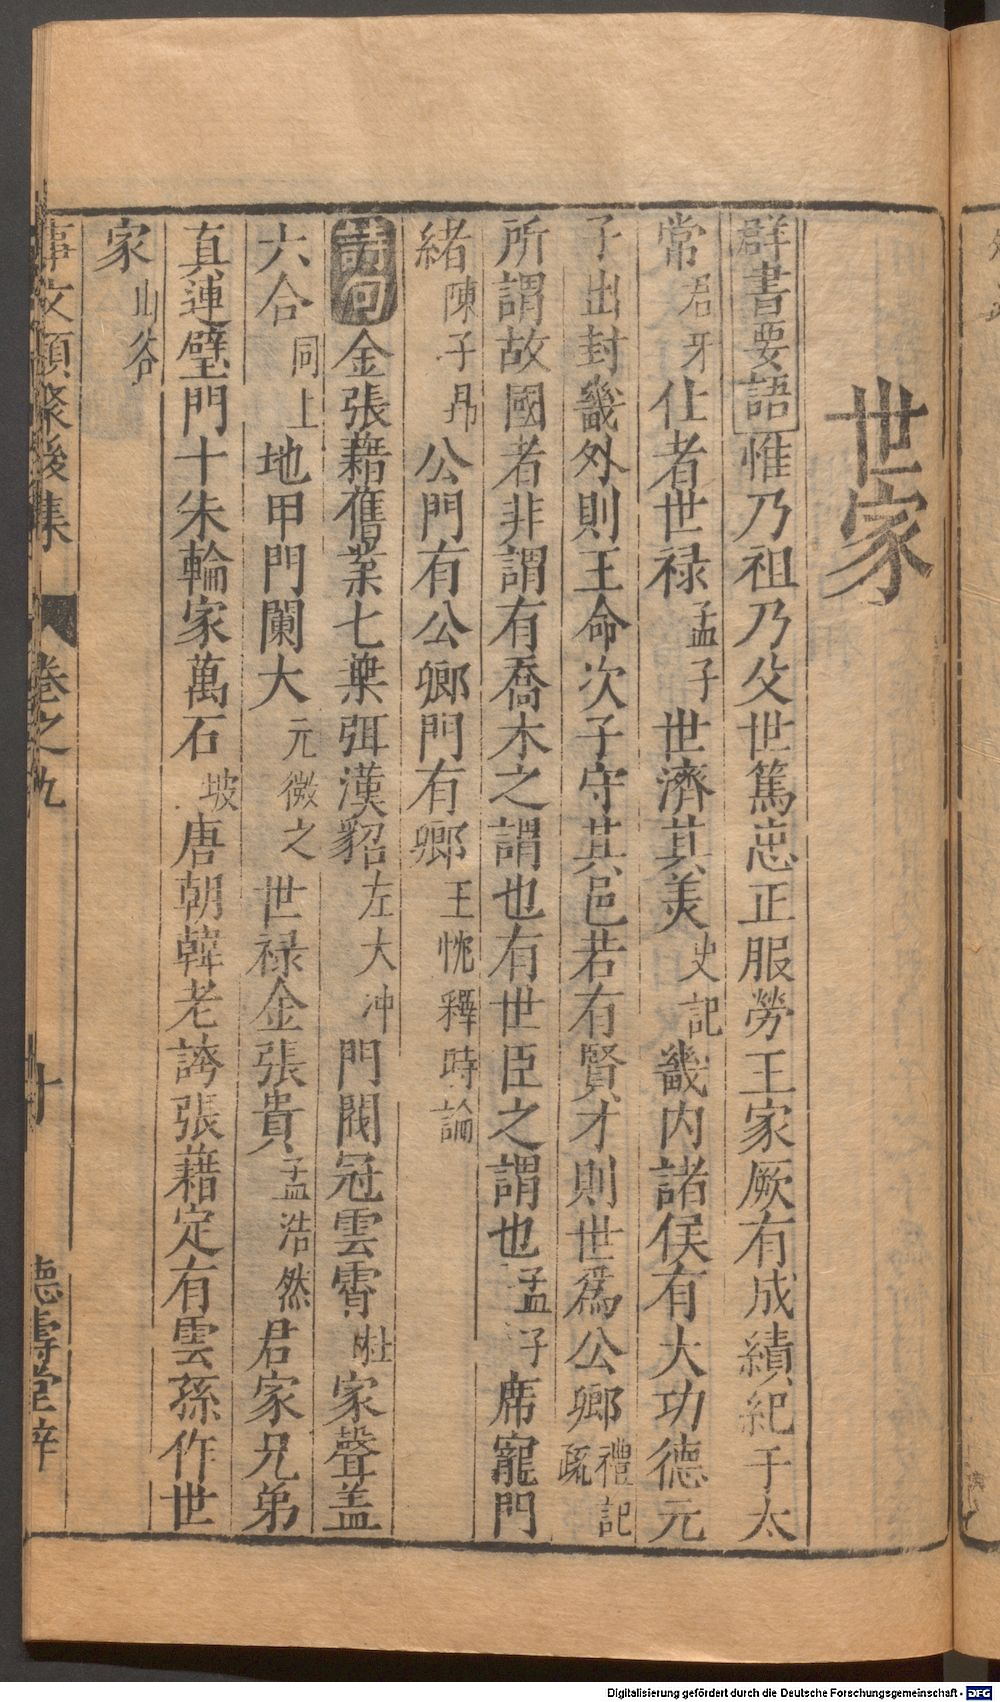 世家
群書要語惟乃祖乃父世篤忠正服勞王家厥有成績紀于太
常君牙仕者世祿孟子世濟其美史記畿内諸侯有大功德元
子出封畿外則王命次子守其邑若有賢才則世爲公卿禮記疏
所謂故國者非謂有喬木之謂也有世臣之謂也孟子席寵門
緒陳子昂公門有公卿門有卿王忱釋時論
詩句金張藉舊業七葉弭漢貂左大冲門閥冠雲霄杜家聲盖
六合同上地甲門闌大元微之世祿金張貴孟浩然君家兄弟
真連璧門十朱輪家萬石坡唐朝韓老誇張藉定有雲孫作世
家山谷
事文類聚後集 卷之九 十 德壽堂梓
Digitalisierung gefördert durch die Deutsche Forschungsgemeinschaft - DFG